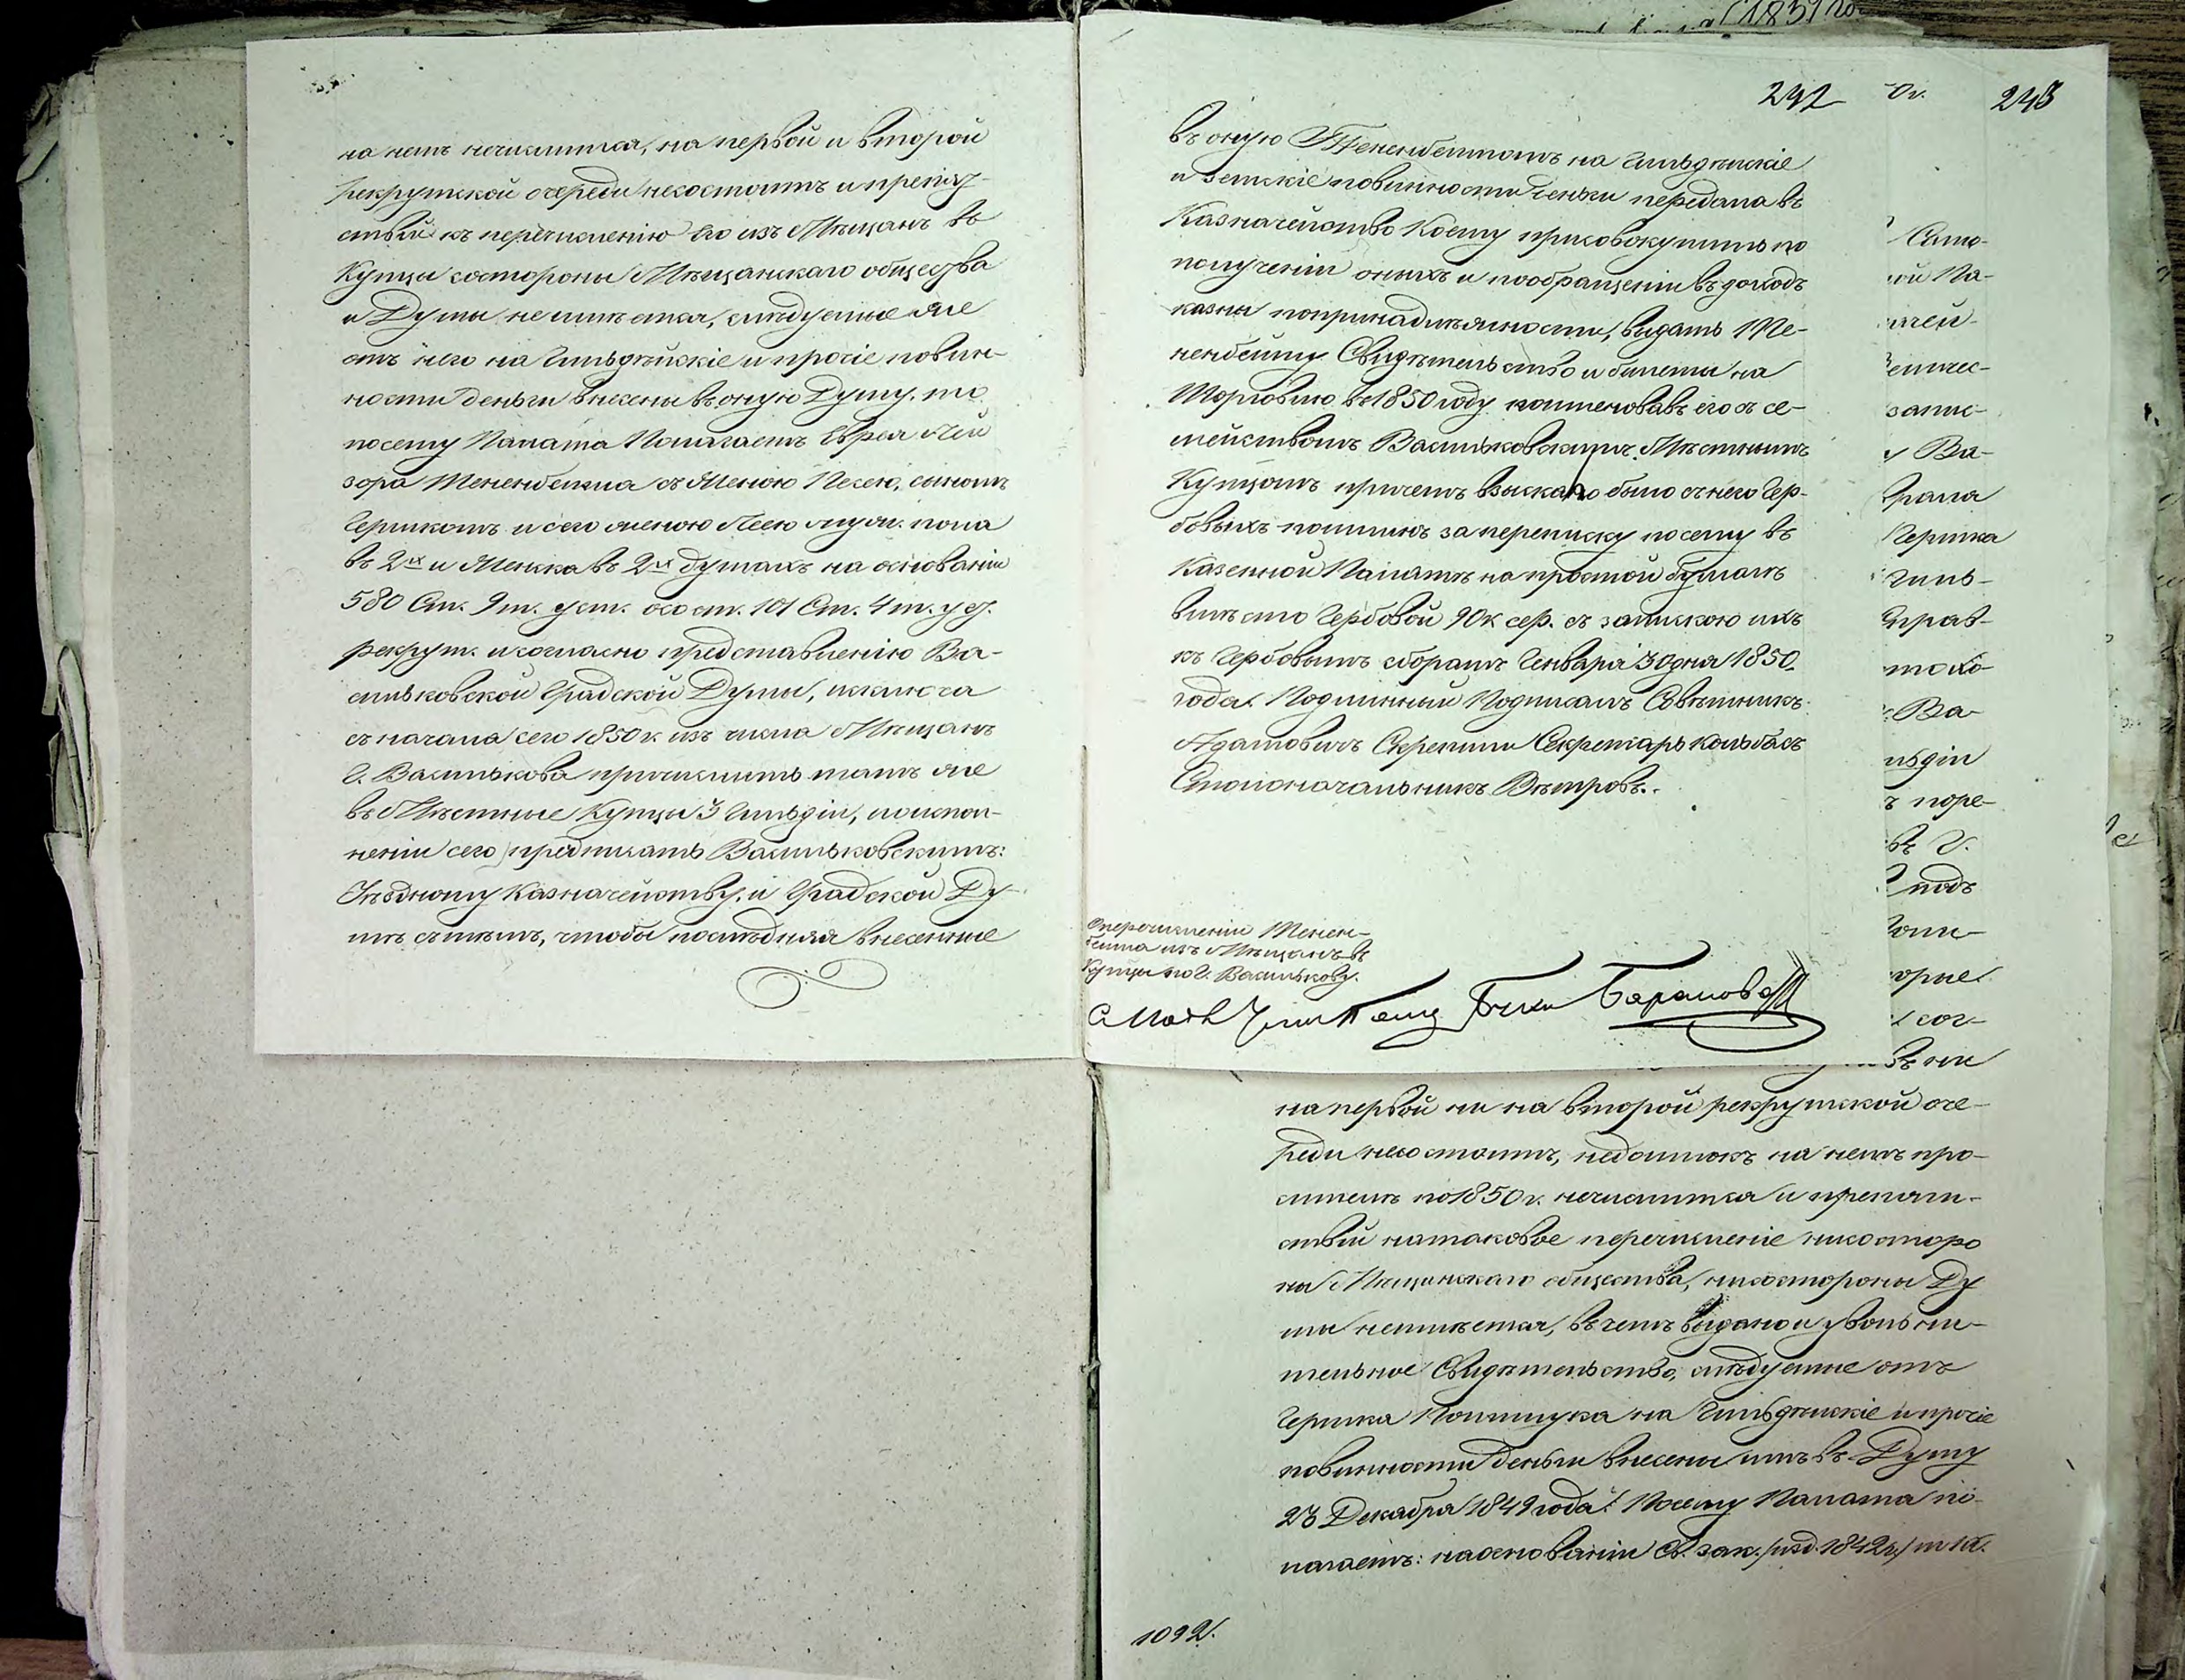 на немъ нечислится, на первой и второй
рекрутской очереди несостоитъ и препят-
ствій къ перечисленію его изъ Мѣщанъ въ
Купцы состороны Мѣщанскаго общества
и Думы неимѣется, слѣдуемые же
отъ него на Гильдѣйскіе и прочіе повин-
ности деньги внесены въ оную Думу, то
посему Палата Полагаетъ Еврея Лей
зора Тененбейма съ Женою Песею, сыномъ
Гершкомъ и сего женою Леею муж. пола
въ 2хъ и Женска въ 2хъ душахъ на основаніи
580 Ст. 9 т. уст. осо ст. 101 Ст. 4 т. уст.
рекрут. и согласно представленію Ва-
сильковской Градской Думы, исключа
съ начала сего 1850 г. изъ числа Мѣщанъ
Г. Василькова причислить тамъ же
въ Мѣстные Купцы 3 Гильдіи, по испол-
неніи сего предписать Васильковскимъ:
Уѣздному Казначейству, и Градской Ду-
мѣ съ тѣмъ, чтобы послѣдняя внесенные
242
въ оную Тененбеймомъ на Гильдѣйскіе
и Земскіе повинности деньги передала въ
Казначейство Коему присовокупить по
полученіи оныхъ и пообращеніи въ доходъ
казны попринадлѣжности, выдать Те-
ненбейму Свидѣтельство и билеты на
Торговлю въ 1850 году поименовавъ его съ се-
мействомъ Васильковскимъ Мѣстнымъ
Купцомъ причемъ взыскано было съ него Гер-
бовыхъ пошлинъ за переписку посему въ
Казенной Палатѣ на простой бумагѣ
вмѣсто Гербовой 90 к сер. съ запискою ихъ
къ Гербовымъ сборамъ Генваря 30 дня 1850
года. Подлинный Подписалъ Совѣтникъ
Адамовичъ Скрепили Секретарь Кольбасъ
Столоначальникъ Вѣтровъ.
О перечисленіи Тенен-
бейма изъ Мѣщанъ въ
Купцы по г. Василькову.
Барановъ
248
Само-
ой Па-
начей-
записи
Ва-
Гершка
Гиль-
Ва-
ильдіи
въ Г.
подъ
орые
сог-
на первой ни на второй рекрутской оче-
реди несостоитъ, недоимокъ на немъ про-
литъ по 1850 г. нечислится и препят-
ствій натаковое перечисленіе нисосторо
ны Мѣщанскаго общества, нисостороны Ду
мы неимѣется, въ чемъ выдано и увольни-
тельное Свидѣтельство, слѣдуемые отъ
Гершка Полищука на Гильдѣйскіе и прочіе
повинности деньги внесены имъ въ Думу
23 Декабря 1849 года. Посему Палата по-
лагаетъ: на основаніи Св. зак. /изд. 1842 г./ т. IX.
1092.